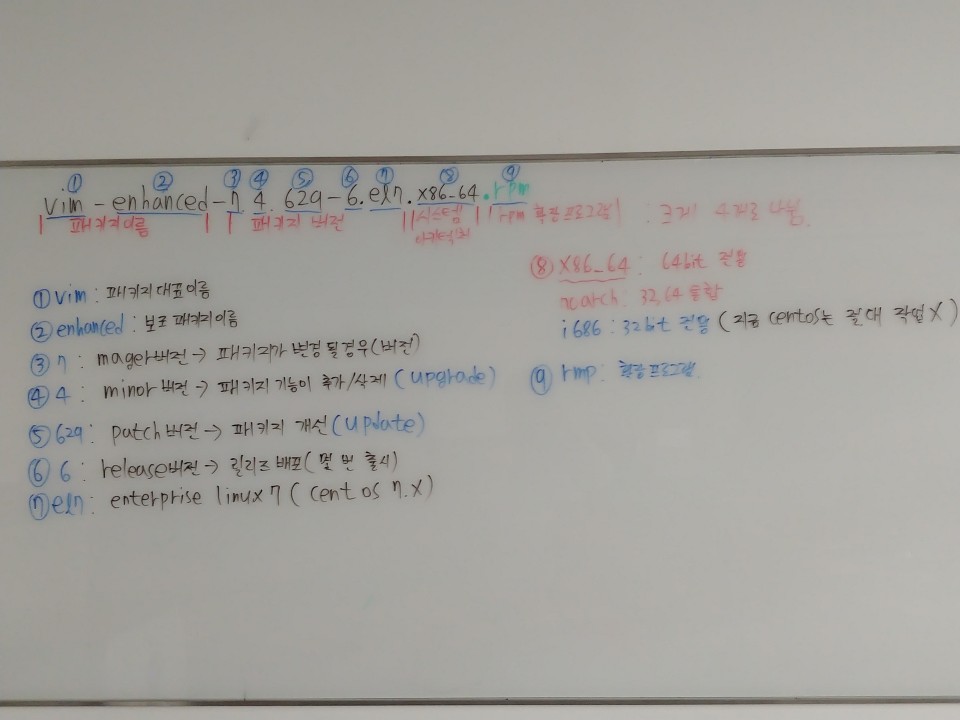 ① ② ③ ④ ⑤ ⑥ ⑦ ⑧ ⑨
vim - enhanced - 7 4. 629 - 6. el7. x86_64 .rpm
패키지이름 패키지 버전 시스템 rpm 확장프로그램 . 크게 4개로 나뉨.
아키텍처
① vim : 패키지 대표이름
② enhanced : 보조패키지이름
③ 7 : mager버전 → 패키지가 변경 될 경우(버전)
④ 4 : minor 버전 → 패키지 기능이 추가/삭제 (upgrade)
⑤ 629 : patch버전 → 패키지 개선 (update)
⑥ 6 : release버전 → 릴리즈 배포( 몇 번 출시)
⑦ el7 : enterprise linux 7 ( cent os 7.X )
⑧ x86_64 : 64bit 전용
: 32,64 통합
i686 : 32bt 전용 (지금 centos는 절대 작업 X )
⑨ rmp : 확장프로그램.